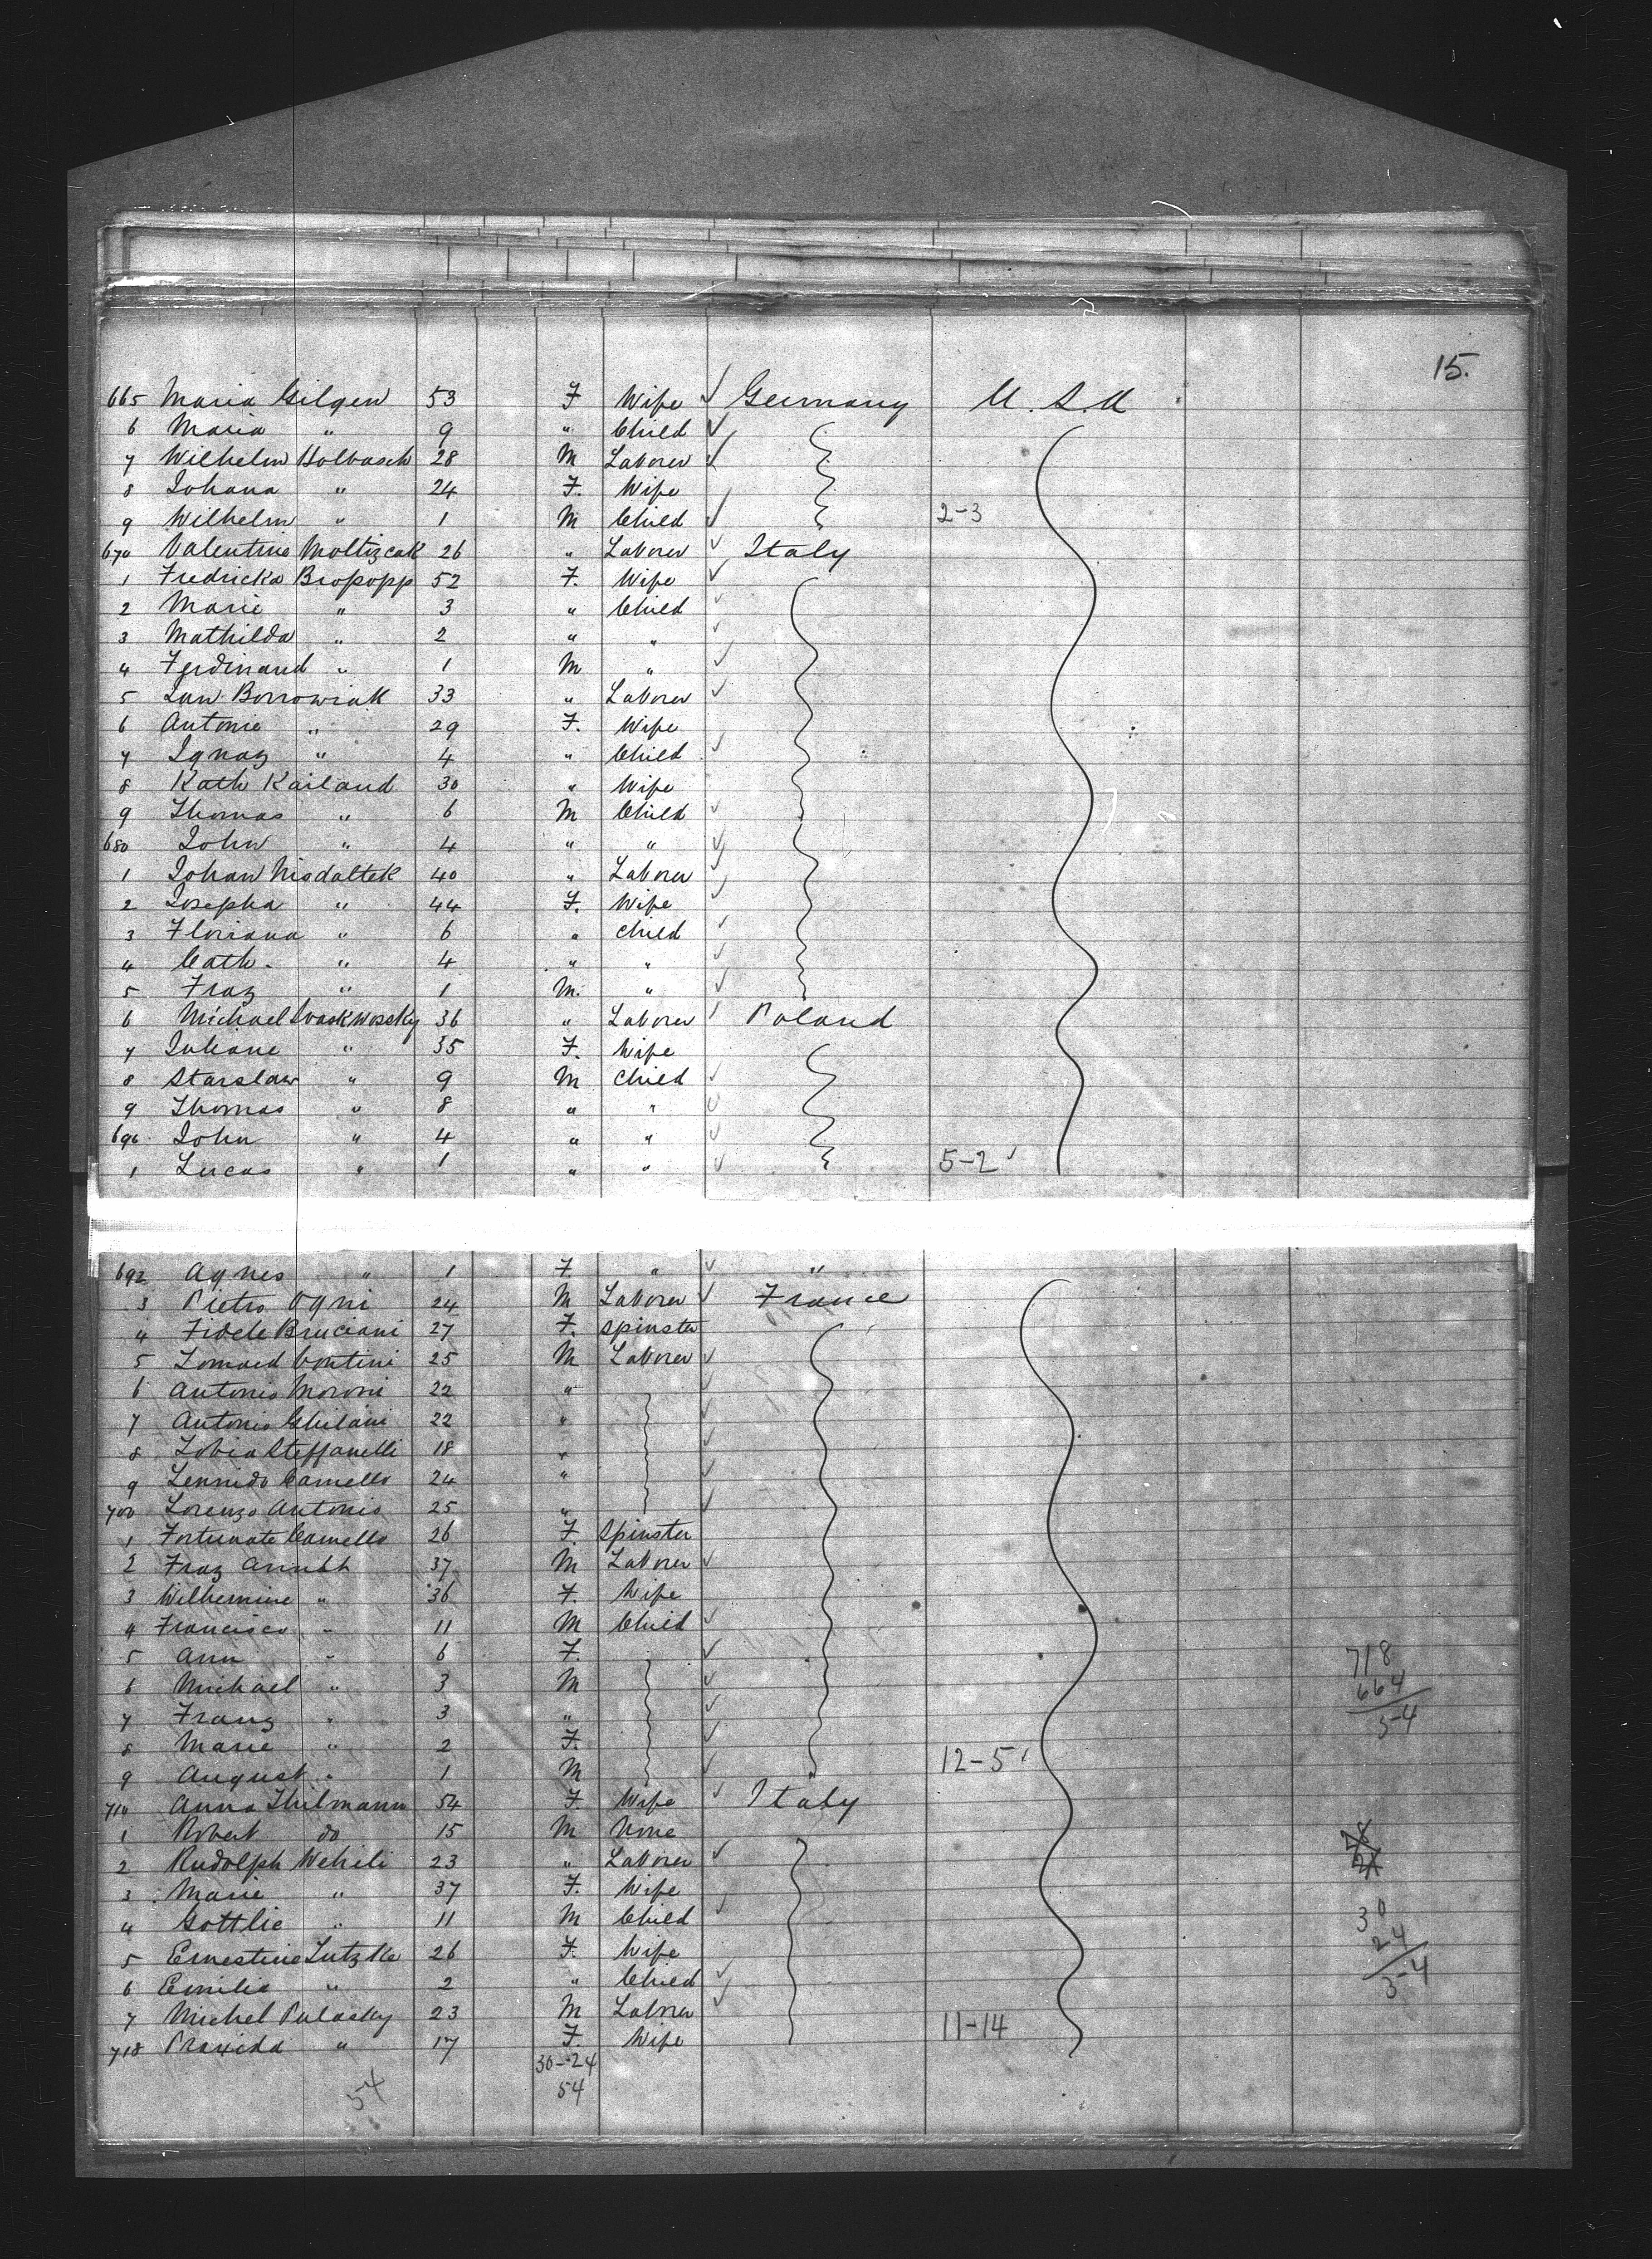 15.
665 Maria Gilgen 53 F Wife ✓ Germany U.S.A
6 Maria " 9 " Child ✓
7 Wilhelm Holbasch 28 M Laborer ✓
8 Johana " 24 F. Wife
9 Wilhelm " 1 M Child ✓ 2-3
670 Valentine Moltizcak 26 " Laborer ✓ Italy
1 Fredricka Bropopp 52 F. Wife ✓
2 Marie " 3 " Child ✓
3 Mathilda " 2 " " ✓
4 Ferdinand " 1 M " ✓
5 Jan Borrowiak 33 " Laborer ✓
6 Antonie " 29 F. Wife
7 Ignaz " 4 " Child ✓
8 Kath Kailand 30 " Wife
9 Thomas " 6 M Child ✓
680 John " 4 " " ✓
1 Johan Nisdaltek 40 " Laborer ✓
2 Josepha " 44 F. Wife ✓
3 Floriana " 6 " Child ✓
4 Cath. " 4 " " ✓
5 Fraz " 1 M. " ✓
6 Michael 36 " Laborer ✓ Poland
7 Juliane " 35 F. Wife
8 Starslaw " 9 M Child ✓
9 Thomas " 8 " " ✓
690 John " 4 " " ✓
1 Lucas " 1 " " ✓ 5-2 ✓
692 Agnes " 1 F. " ✓ "
3 Pietro Ogni 24 M Laborer ✓ France
4 Fidele Bruciani 27 F. Spinster
5 Contini 25 M Laborer ✓
6 Antonio Moroni 22 " ✓
7 Antonio Ghilani 22 " ✓
8 Tobia Steffanelli 18 " ✓
9 Camello 24 " ✓
700 Lorenzo Antonio 25 " ✓
1 Fortunate Camello 26 F. Spinster
2 Fraz 37 M Laborer ✓
3 Wilhemine " 36 F. Wife
4 Francisco " 11 M Child ✓
5 Ann " 6 F. ✓ 718
6 Michael " 3 M ✓ 664
7 Franz " 3 " ✓ 54
8 Marie " 2 F. ✓
9 August " 1 M ✓ 12-5 ✓
710 Anna Thilmann 54 F. Wife ✓ Italy
1 Robert do 15 M None
2 Rudolph Wehili 23 " Laborer ✓
3 Marie " 37 F. Wife
4 Gottlie " 11 M Child ✓ 30
5 Ernestine Lutzke 26 F. Wife 24
6 Emilie " 2 " Child ✓ 54
7 Michel Palasky 23 M Laborer ✓ 11-14
718 Praxida " 17 F. Wife
30-24
54 54